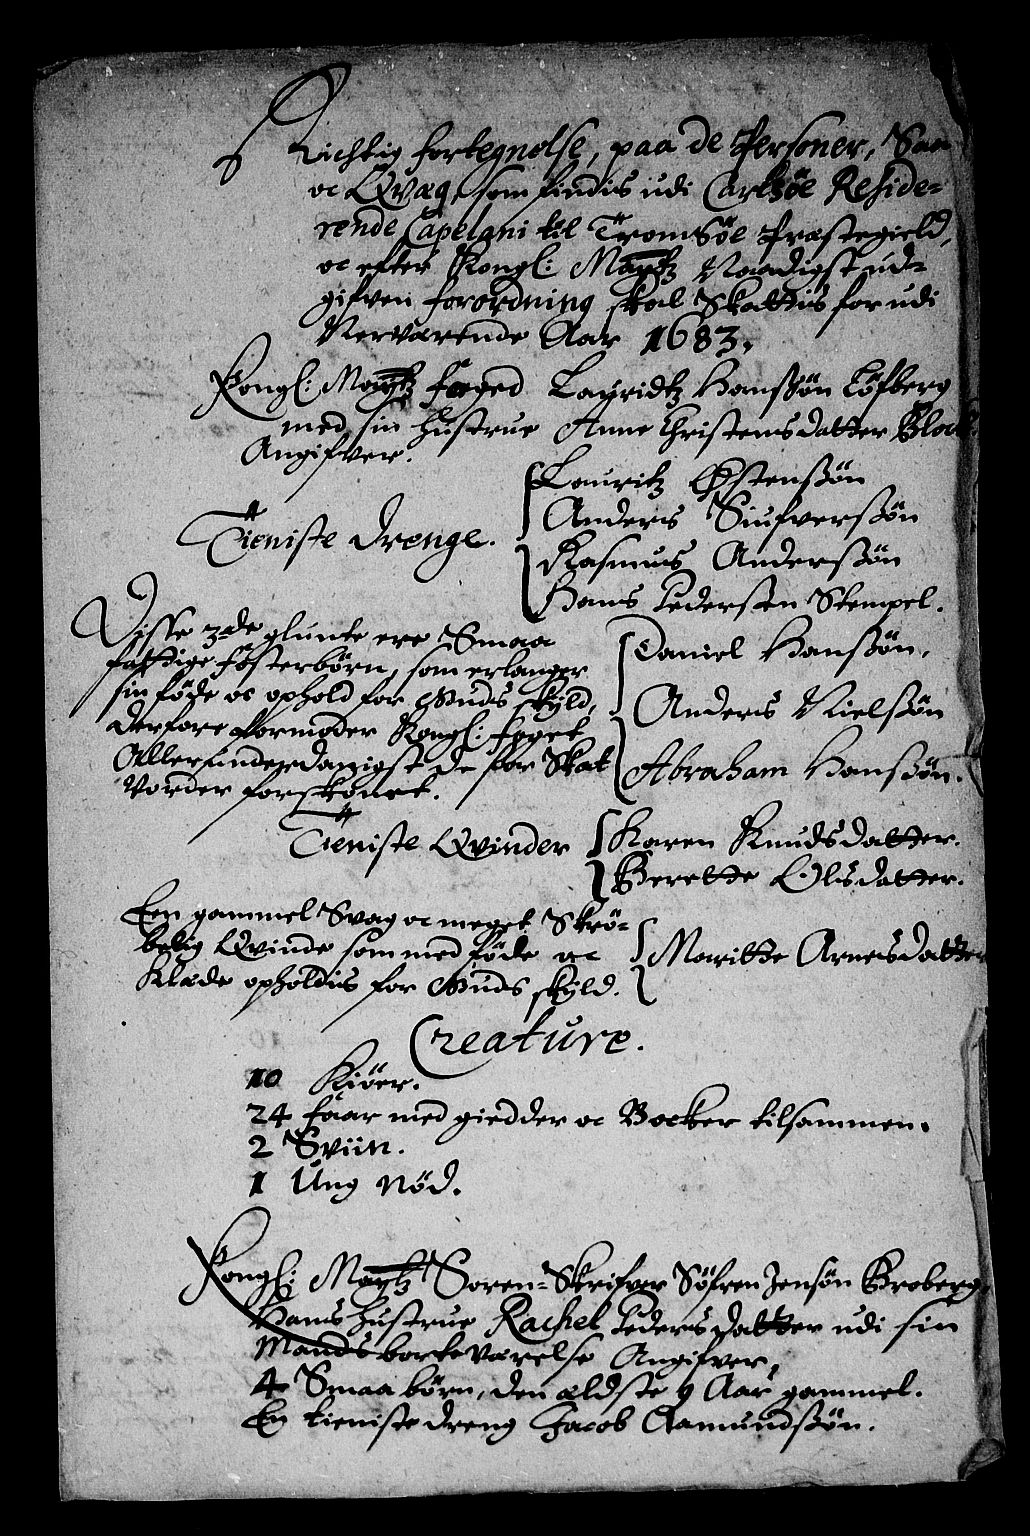 Richtig fortegnelse, paa de Personer, Saa
oc Qvæg, som findis udi Carlsöe Reside-
rende Capelani til Tromsöe Præstegield,
oc efter Kongl: Maytz Naadigst ud-
gifven forordning skal Skattis for udi
Nerværende Aar 1683.
Kongl: Maytz foged Lauridtz Hanssön Löfberg
med sin hustrue Anne Christensdatter Block
Angifver.
Lauritz Østenssön
Anders Siufverssön
Tieniste drenge.
Rasmus Anderssön
Hans Pedersen Stempel.
Disse 3de glunte ere Smaa
fattige fösterbörn, som erlanger
sin föde oc ophold for Guds skyld,
derfore formoder Kongl: foget
Allerunderdanigst de for Skat
Vorder forskonet.
Daniel Hanssön,
Anders Nielssön
Abraham Hanssön.
Tieniste Qvinder
Karen Knudsdatter.
Berette Olsdatter.
Een gammel Svag oc meget Skrö-
belig Qvinde som med föde oc
Klæde opholdis for Guds skyld.
Maritte Arnesdatter
Creature.
10 Kiöer.
24 faar med giedder oc Bocker tilsammen.
2 Sviin.
1 Ung Nöd.
Kongl: Maytz Soren-Skrifver Söfren Jensön Broberg,
Hans hustrue Rachel Pedersdatter udi sin
Mands borteværelse Angifver,
4 Smaa börn, den ældste 9 Aar gammel.
En tieniste dreng Jacob Aamundssön.